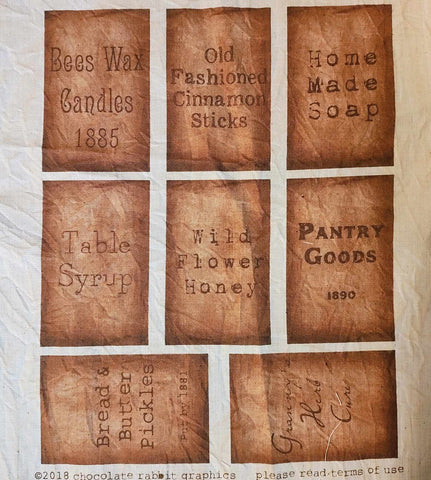 Bees Wax
Candles
1885
Old
Fashioned
Cinnamon
Sticks
Home
Made
Soap
Table
Syrup
Wild
Flower
Honey
PANTRY
GOODS
1890
Bread &
Butter
Pickles
1881
Granny's
Herb
Cure
©2018 chocolate rabbit graphics
please read terms of use